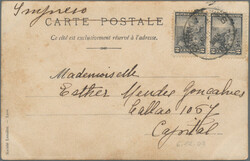 Impreso
CARTE POSTALE
Ce côté est exclusivement réservé à l'adresse.
Mademoiselle
Esther Mendes Gonçalves
Callao 1057
Capital